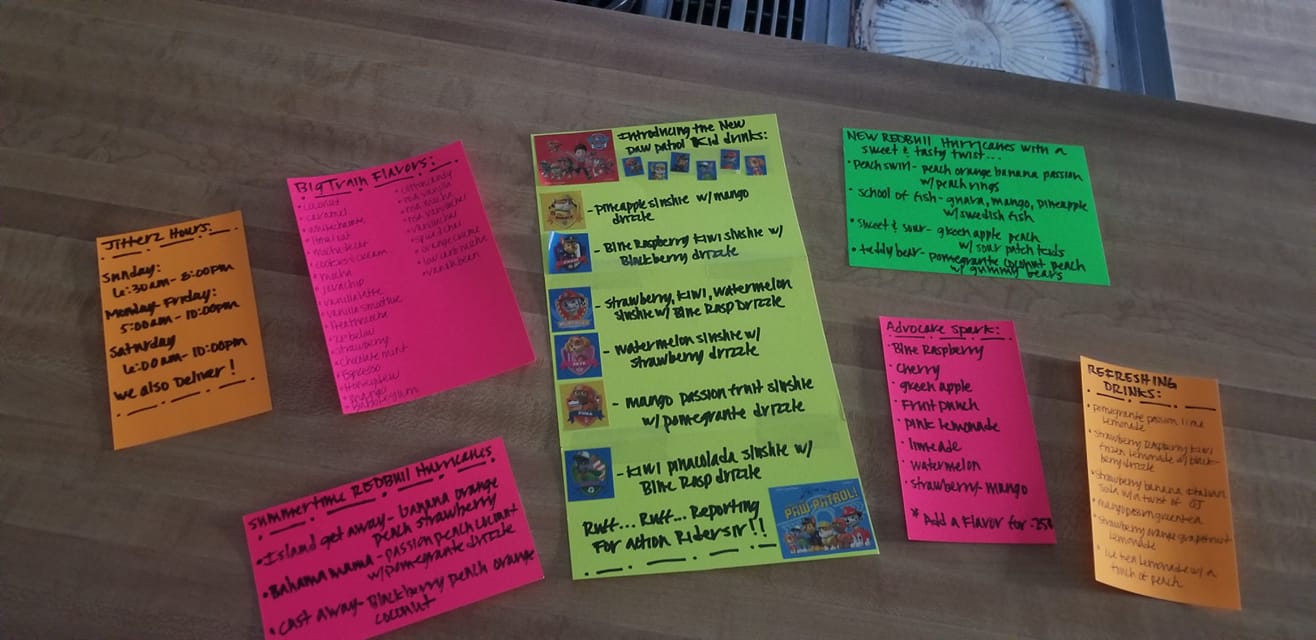 Jitterz Hours
Sunday:
6:30am - 8:00pm
Monday - Friday:
5:00am - 10:00pm
Saturday
6:00am - 10:00pm
we also Deliver!
Big Train Flavors:
• coconut
• caramel
• mocha
• javachip
• vanilla latte
• vanilla smoothie
• strawberry
• chocolate mint
• Espresso
• Honeydew
• mango
• bubblegum
• cottoncandy
• nsa vanilla
• nsa mocha
• spiced chai
• orange creme
• low carb mocha
• vanilla bean
summertime REDBUll Hurricanes
• Island get away - banana orange
peach strawberry
• Bahama mama - passion peach coconut
w/ pomegrante drizzle
• cast away - Blackberry peach orange
coconut
Introducing the New
paw patrol Kid drinks:
- pineapple slushie w/ mango
drizzle
- Blue Raspberry Kiwi slushie w/
Blackberry drizzle
- strawberry, kiwi, watermelon
slushie w/ Blue Rasp Drizzle
- watermelon slushie w/
strawberry drizzle
- mango passion fruit slushie
w/ pomegrante drizzle
- Kiwi pinacolada slushie w/
Blue Rasp drizzle
Ruff... Ruff... Reporting
For action Rider sir!!
PAW PATROL!
NEW REDBUll Hurricanes with a
sweet & tasty twist...
• Peach swirl - peach orange banana passion
w/ peach rings
• school of fish - guava, mango, pineapple
w/ swedish fish
• sweet & sour - green apple peach
w/ sour patch kids
• teddy bear - pomegrante coconut peach
w/ gummy bears
Advocare Spark:
• Blue Raspberry
• cherry
• green apple
• Fruit punch
• pink lemonade
• limeade
• watermelon
• strawberry-mango
* Add a Flavor for .25¢
REFRESHING
DRINKS:
• pomegrante passion lime
lemonade
• strawberry Raspberry kiwi
frozen lemonade w/ black-
berry drizzle
• strawberry banana italian
soda w/ a twist of OJ
• mango passion green tea
• strawberry orange grapefruit
lemonade
• ice tea lemonade w/ a
touch of peach